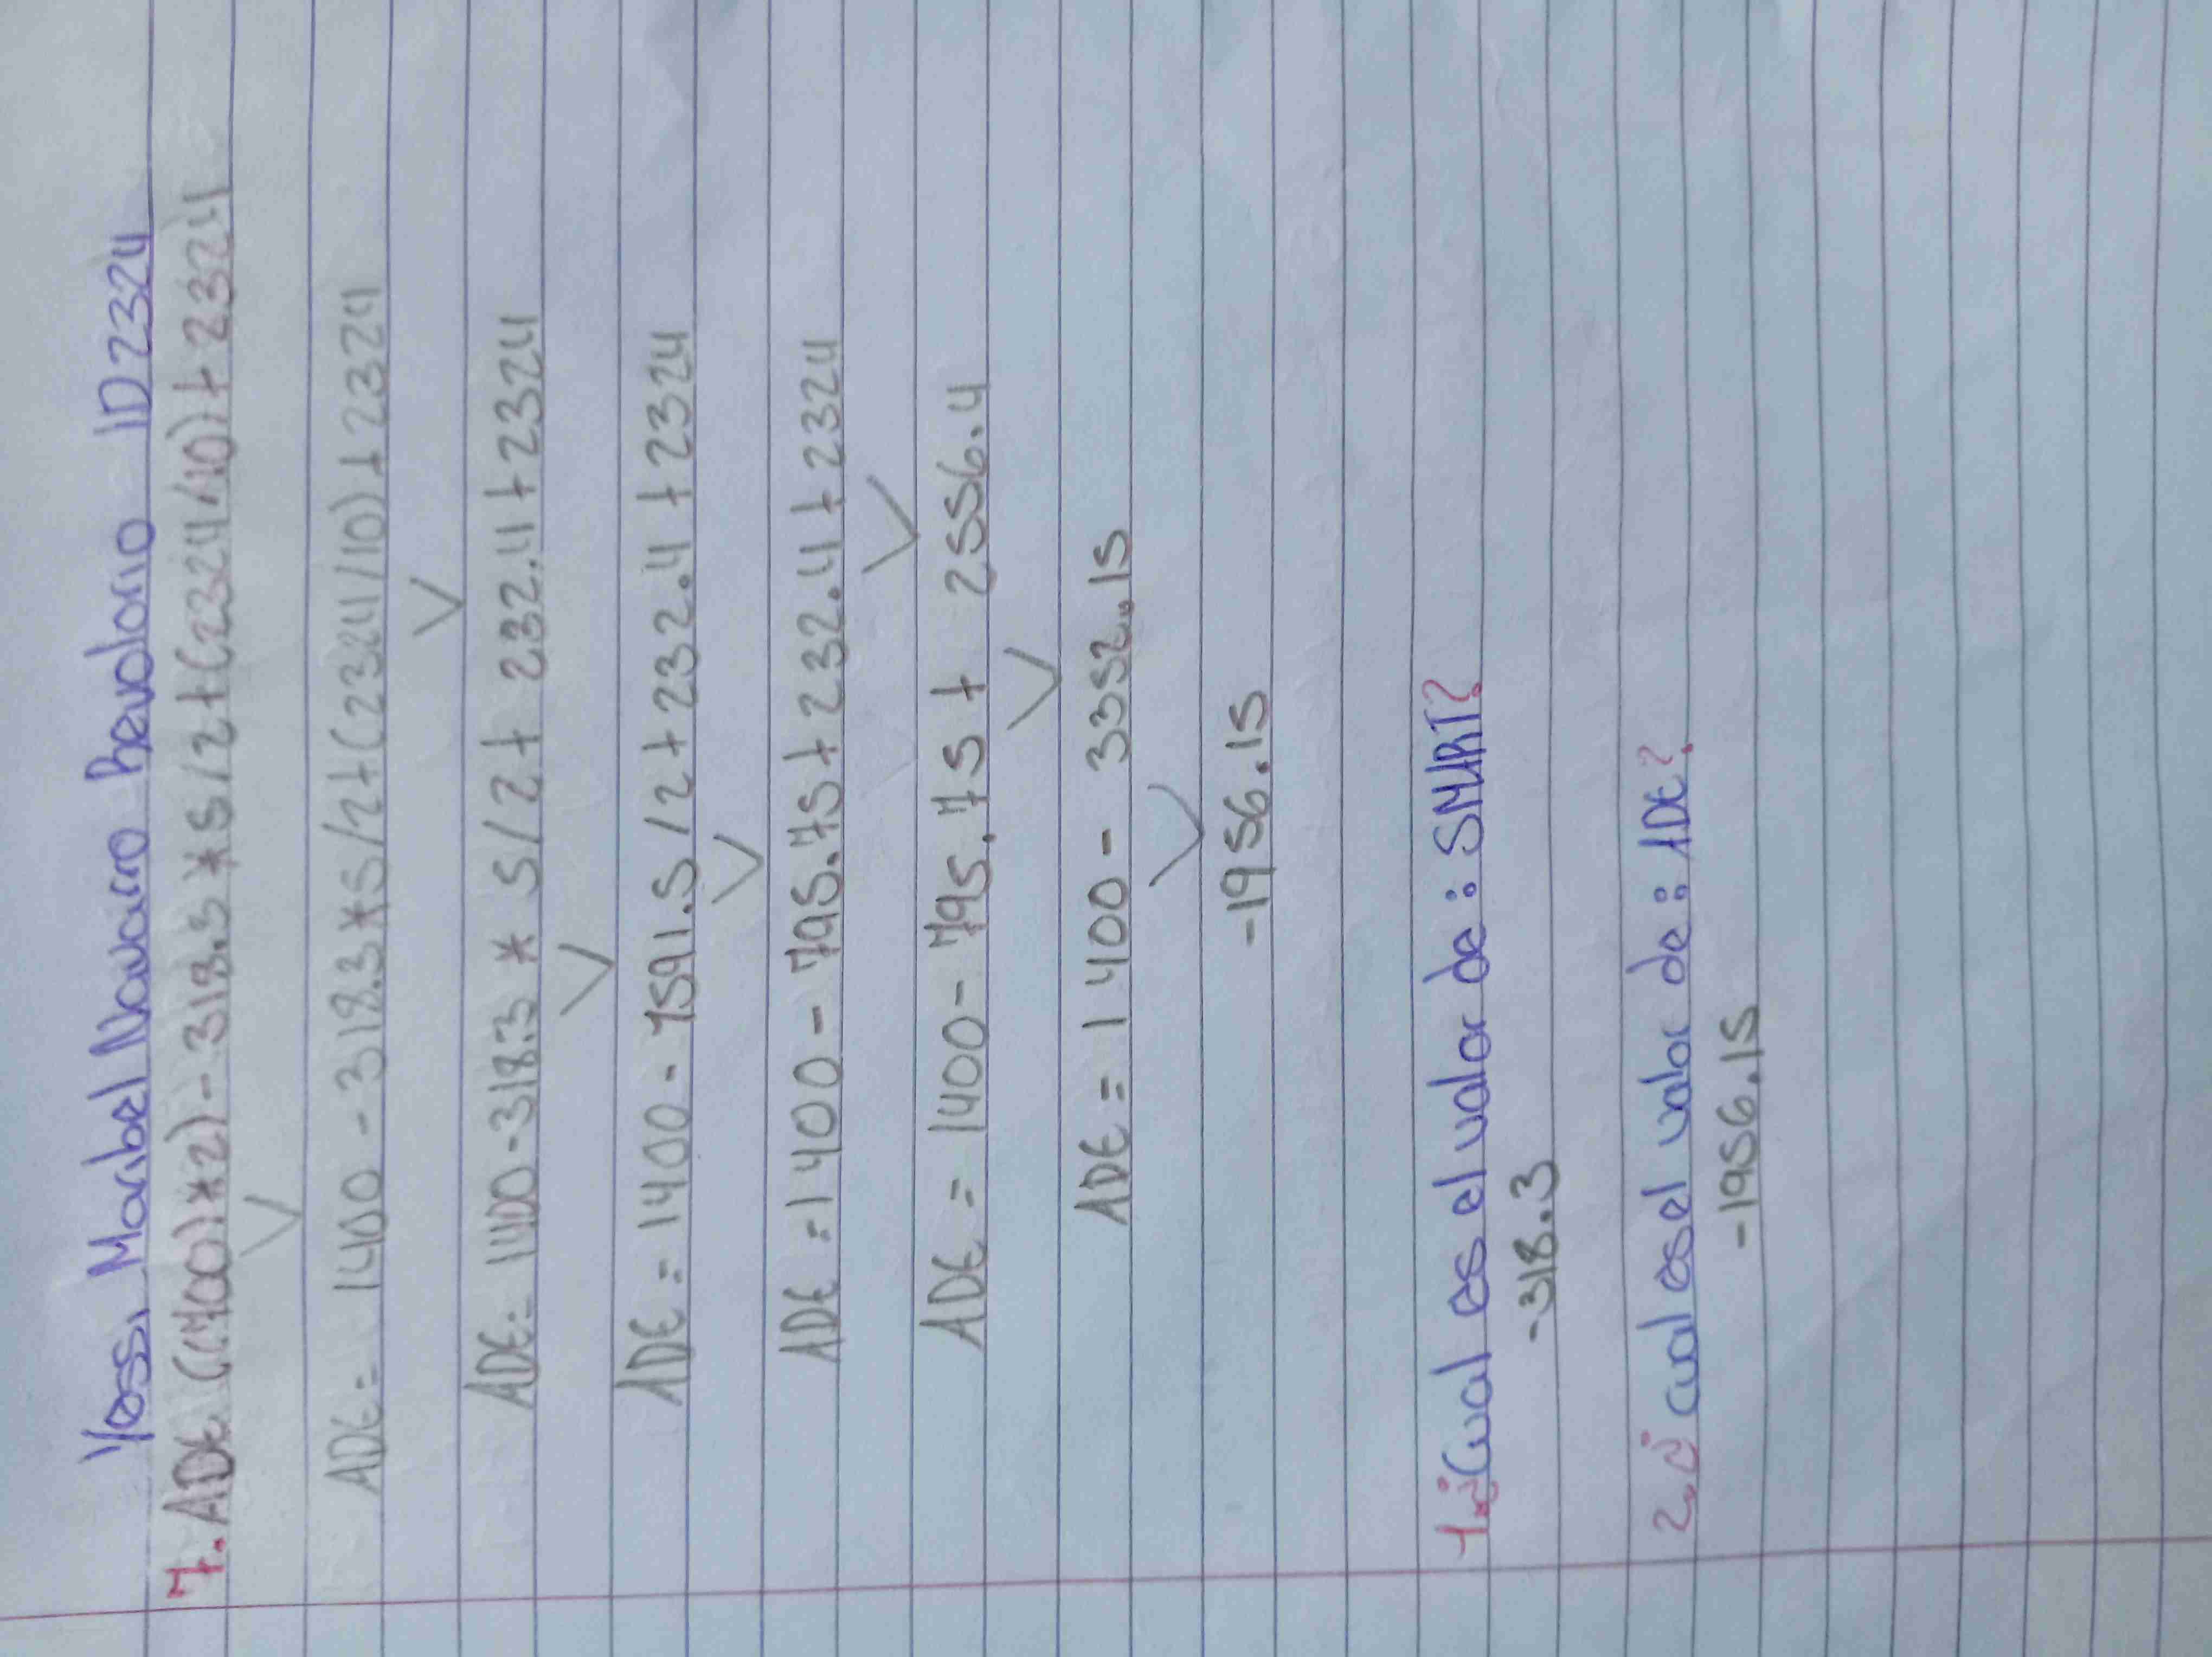 Yessi Maribel Navarro Revolorio ID 2324
7. ADE ((700)*2)-318.3*5/2+(2324/10)+2324
ADE= 1400-318.3*5/2+(2324/10)+2324
ADE= 1400-318.3*5/2+232.4+2324
ADE= 1400-1591.5/2+232.4+2324
ADE=1400-795.75+232.4+2324
ADE= 1400-795.75+ 2556.4
ADE= 1400- 3352.15
-1956.15
1.¿Cual es el valor de: SMART?
-318.3
2.¿ cual es el valor de: ADE?
-1956.15